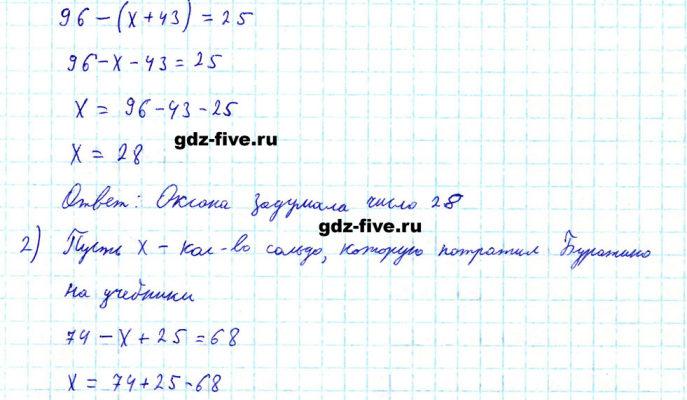 96-(x+43)=25
96-x-43=25
x = 96-43-25
gdz-five.ru
x = 28
Ответ: Оксана задумала число 28
gdz-five.ru
2) Пусть x - кол-во сольдо, которую потратил Буратино
на учебники
74-x+25=68
x = 74+25-68